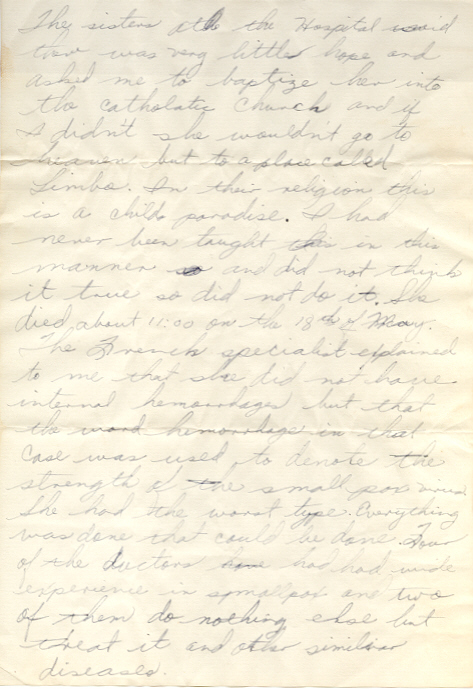 The sisters at the Hospital said
there was very little hope and
asked me to baptize her into
the catholatic Church and if
I didn't she wouldn't go to
heaven but to a place called
Limbo. In their religion this
is a childs paradise. I had
never been taught this in this
manner so and did not think
it true so did not do it. She
died about 11:00 on the 18th of May.
The French specialist explained
to me that she did not have
internal hemorrhages but that
the word hemorrhage in that
case was used to denote the
strength of the small pox virus
She had the worst type. Everything
was done that could be done. Four
of the doctors have had had wide
experience in smallpox and two
of them do nothing else but
treat it and other similiar
diseases.